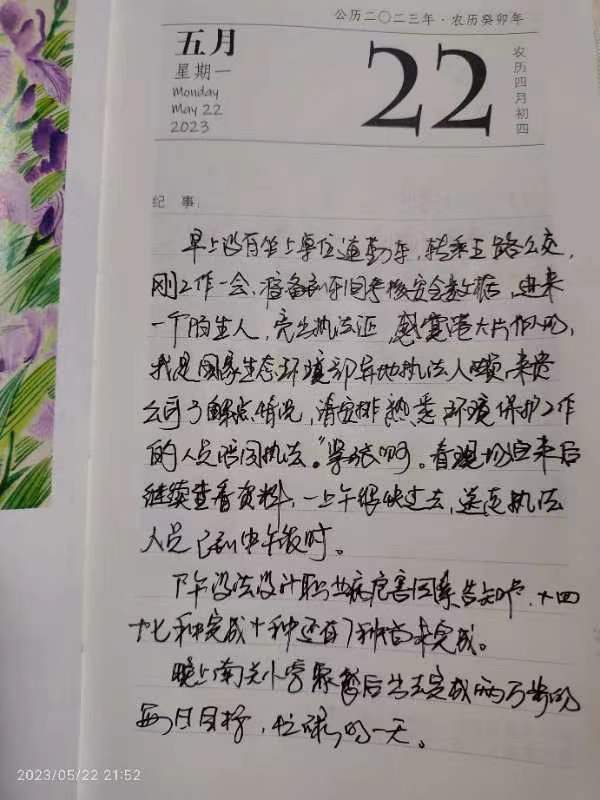 公历二〇二三年·农历癸卯年
五月
星期一
Monday
May 22
2023
22
农历四月初四
纪 事:
早上没有坐上单位通勤车,转乘五路公交,
刚工作一会,准备到车间考核安全数据,进来
一个陌生人,亮出执法证,感觉港大片似的,
我是国家生态环境部异地执法人员,来贵
公司了解点情况,请安排熟悉环境保护工作
的人员陪同执法。"紧张啊。看现场回来后
继续查看资料,一上午很快过去,送走执法
人员已到中午饭时。
下午没法设计职业病危害因素告知卡,十四
种完成十种还有7种尚未完成。
晚上南关小学聚餐后出去完成两万步的
每日目标,忙碌的一天。
2023/05/22 21:52